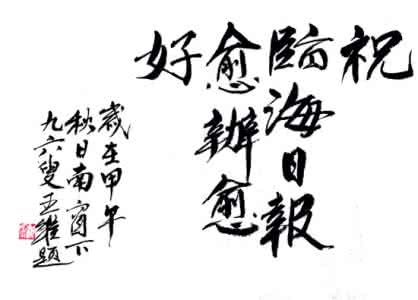 祝
臨海日報
愈辦愈
好
歲在甲午
秋日南窗下
九六叟王維題